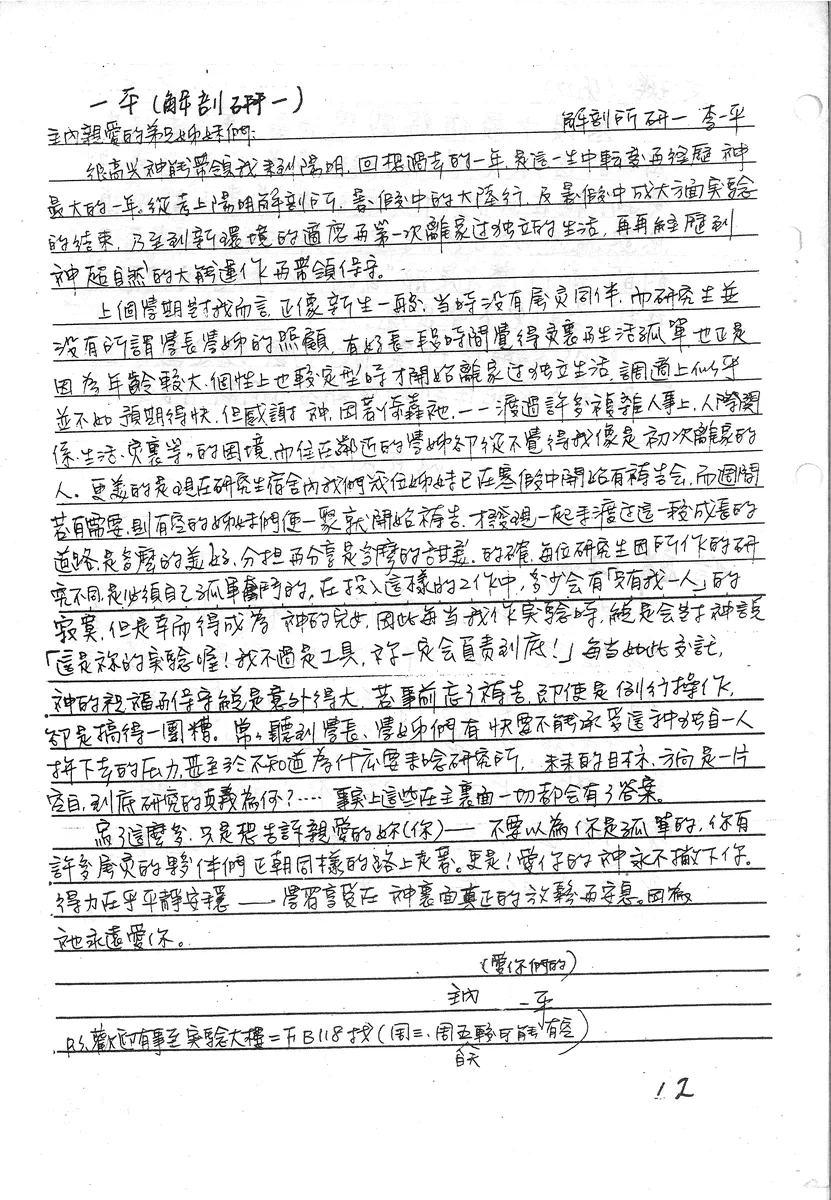 一平(解剖研一)
解剖所研一 李一平
主內親愛的弟兄姊妹們:
很高兴神能帶領我來到陽明,回想過去的一年,是這一生中轉變再經歷 神
最大的一年,從考上陽明解剖所,暑假中的大陸行,及暑假中成大方面实驗
的結束,乃至到新環境的適應再第一次離家过独立的生活,再再經歷到
神超自然的大能運作再帶領保守。
上個學期對我而言,正像新生一般,当時没有屬灵同伴,而研究生並
没有所謂學長學姊的照顧,有好長一段時間覺得灵裏再生活孤單也正是
因為年齡較大、個性上也較定型時才開始離家过独立生活,調適上似乎
並不如預期得快,但感謝神,因著倚靠祂,一一渡過許多複雜人事上,人際関
係、生活、灵裏等的困境,而住在鄰近的學姊卻從不覺得我像是初次離家的
人。更美的是現在研究生宿舍內我們幾位姊妹已在寒假中開始有禱告会,而週間
若有需要,則有空的姊妹們便一聚就開始禱告,才發現一起手渡过這一段成長的
道路,是多麼的美好,分担再分享是多麼的甜美。的確,每位研究生因所作的研
究不同,是必須自己孤單奮鬥的,在投入這樣的工作中,多少会有「只有我一人」的
寂寞,但是幸而得成為 神的兒女,因此每当我作实驗時,總是会對神說
「這是祢的实驗喔!我不過是工具,祢一定会負責到底!」每当如此交託,
神的祝福再保守總是意外得大,若事前忘了禱告,即使是例行操作,
卻是搞得一團糟。常常聽到學長、學姊們有快要不能承受這种独自一人
拼下去的压力,甚至於不知道為什広要來唸研究所,未来的目标、方向是一片
空白,到底研究的真義為何?‥‥事实上這些在主裏面一切都会有了答案。
寫了這麼多,只是想告訴親愛的妳(你)── 不要以為你是孤單的,你有
許多屬灵的夥伴們正朝同樣的路上走著。更是!愛你的神永不撇下你。
得力在乎平靜安穩 ── 學習享受在 神裏面真正的放鬆再安息。因為
祂永遠愛你。
(愛你們的)
主內 一平
P.S.歡迎有事至实驗大樓二下B118找(周三、周五較可能有空)
白天
12